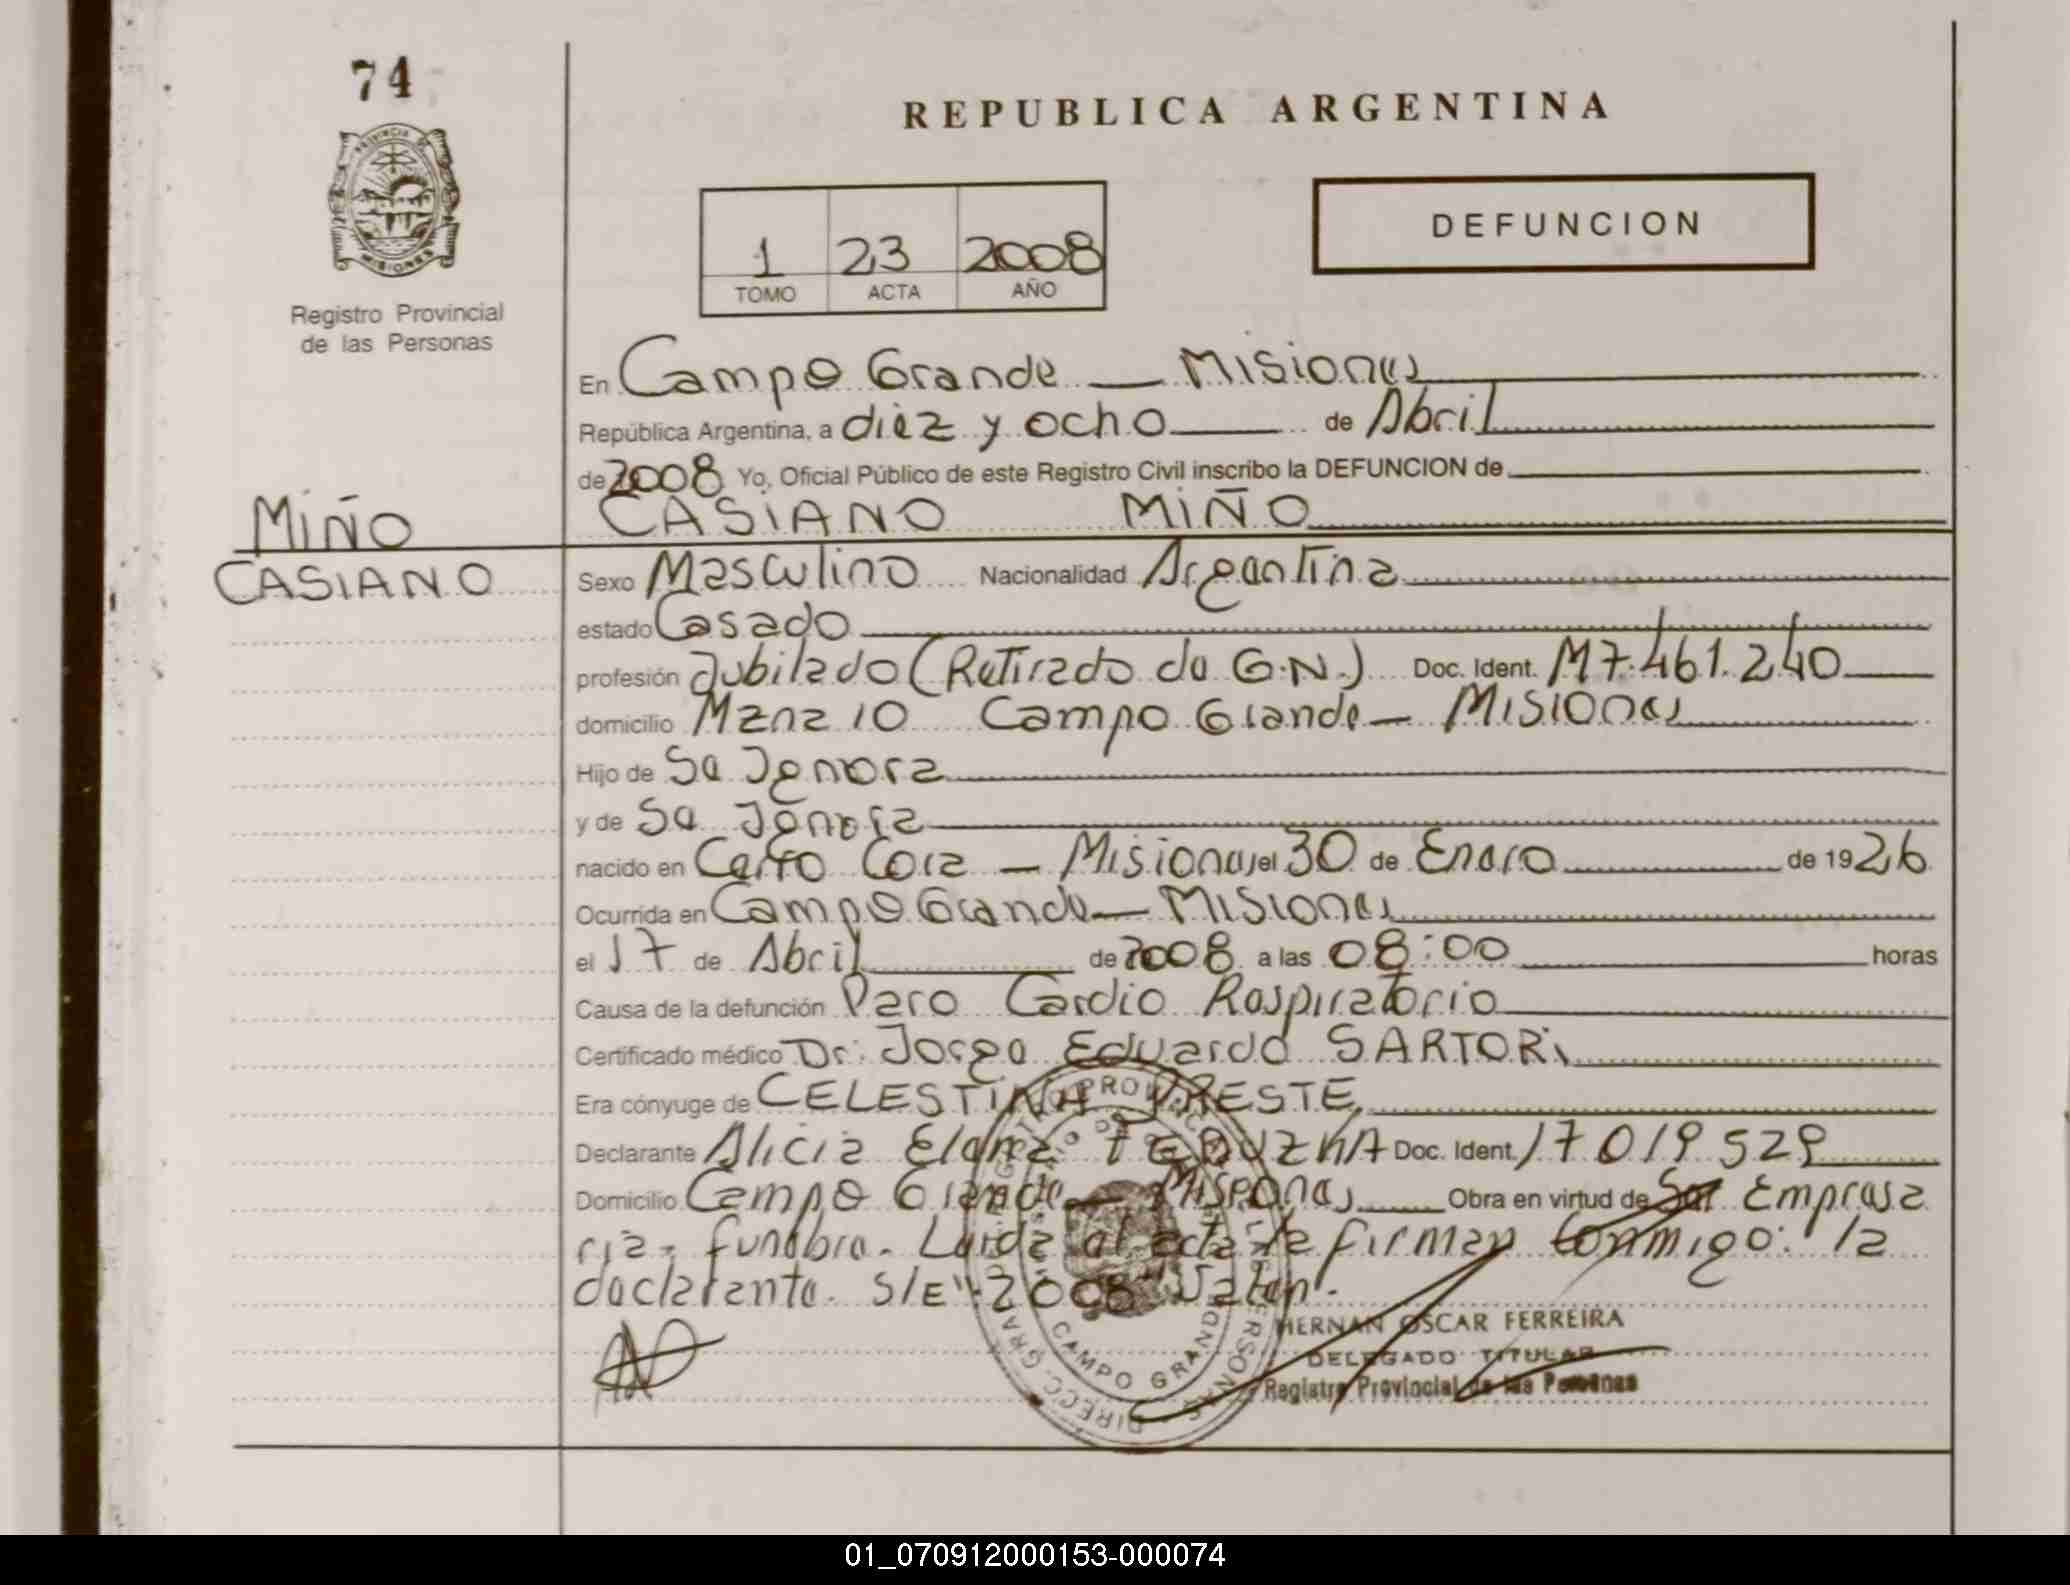 74
REPUBLICA ARGENTINA
PROVINCIA DE
MISIONES
DEFUNCION
1 23 2008
TOMO ACTA AÑO
Registro Provincial
de las Personas
En Campo Grande — Misiones
República Argentina, a diez y ocho de Abril
de 2008 Yo, Oficial Público de este Registro Civil inscribo la DEFUNCION de
MIÑO CASIANO MIÑO
CASIANO Sexo Masculino Nacionalidad Argentina
estado Casado
profesión Jubilado (Retirado de G.N.) Doc. Ident. M7.461.240
domicilio Manz 10 Campo Grande — Misiones
Hijo de Se Ignora
y de Se Ignora
nacido en Cerro Cora — Misiones el 30 de Enero de 1926
Ocurrida en Campo Grande — Misiones
el 17 de Abril de 2008 a las 08:00 horas
Causa de la defunción Paro Cardio Respiratorio
Certificado médico Dr. Jorge Eduardo SARTORI
Era cónyuge de CELESTINA YRESTE
Declarante Alicia Elena Doc. Ident. 17019529
Domicilio Campo Grande — Misiones Obra en virtud de Ser Empresa
ria - funebre. Leida el acta la firman conmigo: la
declarante. S/E": 2008" Valen.
HERNAN OSCAR FERREIRA
DELEGADO TITULAR
Registro Provincial de las Personas
CAMPO GRANDE
01_070912000153-000074